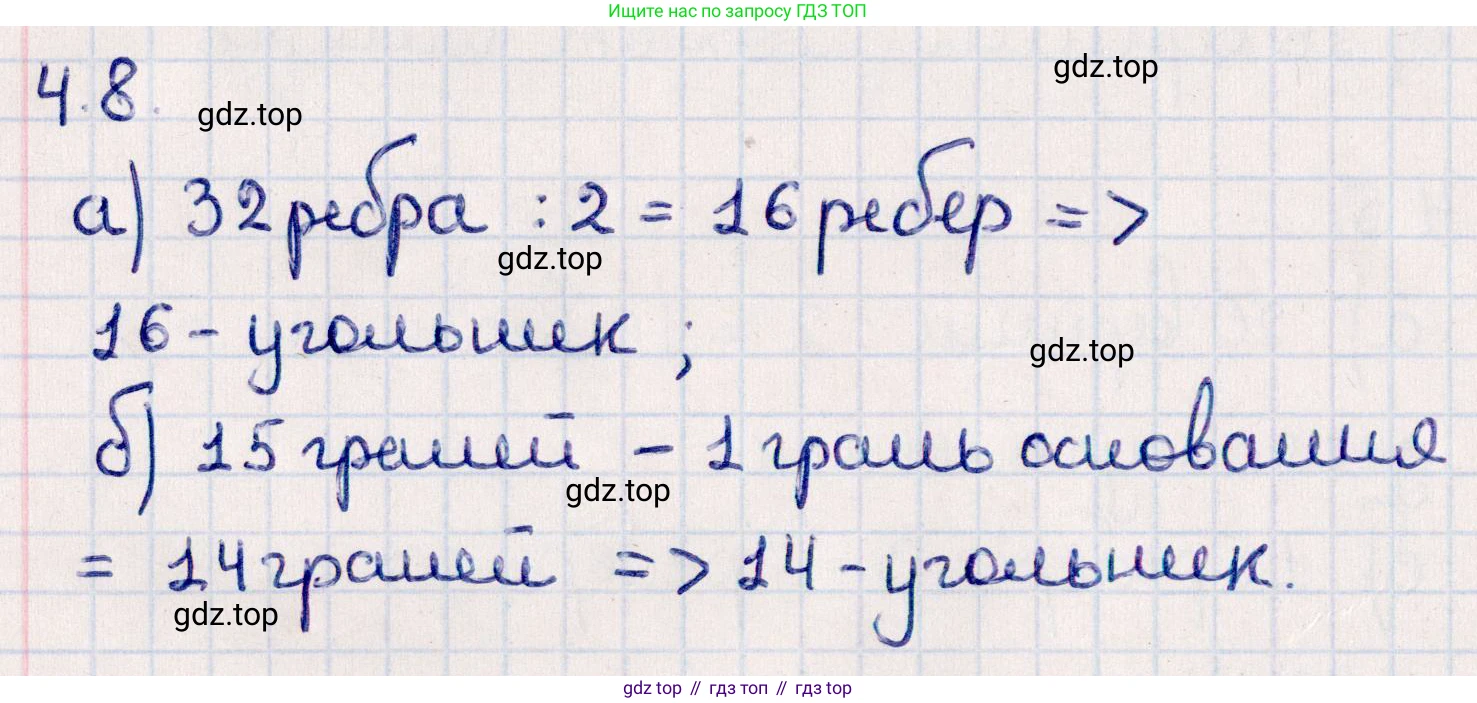 Ищите нас по запросу ГДЗ ТОП
4.8.
gdz.top
gdz.top
а) 32 ребра : 2 = 16 ребер =>
gdz.top
16 - угольник ;
gdz.top
б) 15 граней - 1 грань основания
gdz.top
= 14 граней => 14 - угольник.
gdz.top
gdz top // гдз топ // гдз top